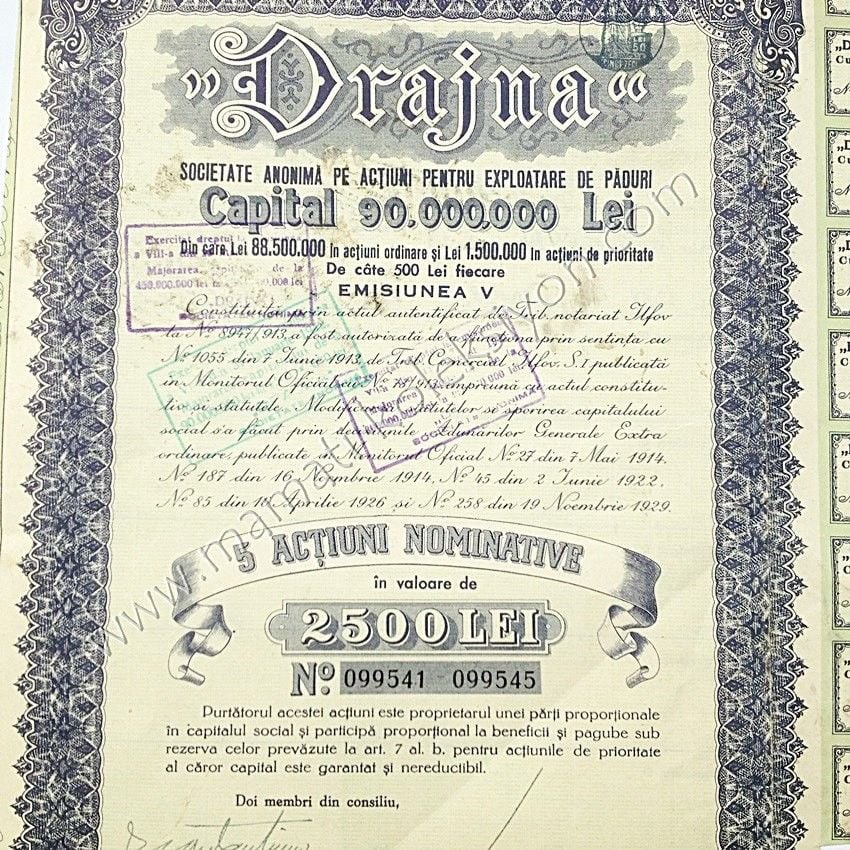 „Drajna“
SOCIETATE ANONIMĂ PE ACȚIUNI PENTRU EXPLOATARE DE PĂDURI
Capital 90.000.000 Lei
Din care Lei 88.500.000 în acțiuni ordinare și Lei 1.500.000 în acțiuni de prioritate
De câte 500 Lei fiecare
EMISIUNEA V
Exercitat dreptul
a VIII-a
Majorarea de la
450.000.000 lei
Constituită prin actul autentificat de Trib. notariat Ilfov
la No 8947/913 a fost autorizată de a funcționa prin sentința cu
No 1055 din 7 Iunie 1913, de Trib. Comercial Ilfov, S. I publicată
în Monitorul Oficial cu No 73/913 împreună cu actul constitu-
tiv și statutele. Modificarea statutelor și sporirea capitalului
social s'a făcut prin deciziunile Adunărilor Generale Extra
ordinare, publicate în Monitorul Oficial No 27 din 7 Mai 1914,
No 187 din 16 Noembrie 1914, No 45 din 2 Iunie 1922,
No 85 din 18 Aprilie 1926 și No 258 din 19 Noembrie 1929.
5 ACȚIUNI NOMINATIVE
în valoare de
2500 LEI
No. 099541 - 099545
Purtătorul acestei acțiuni este proprietarul unei părți proporționale
în capitalul social și participă proporțional la beneficii și pagube sub
rezerva celor prevăzute la art. 7 al. b. pentru acțiunile de prioritate
al căror capital este garantat și nereductibil.
Doi membri din consiliu,